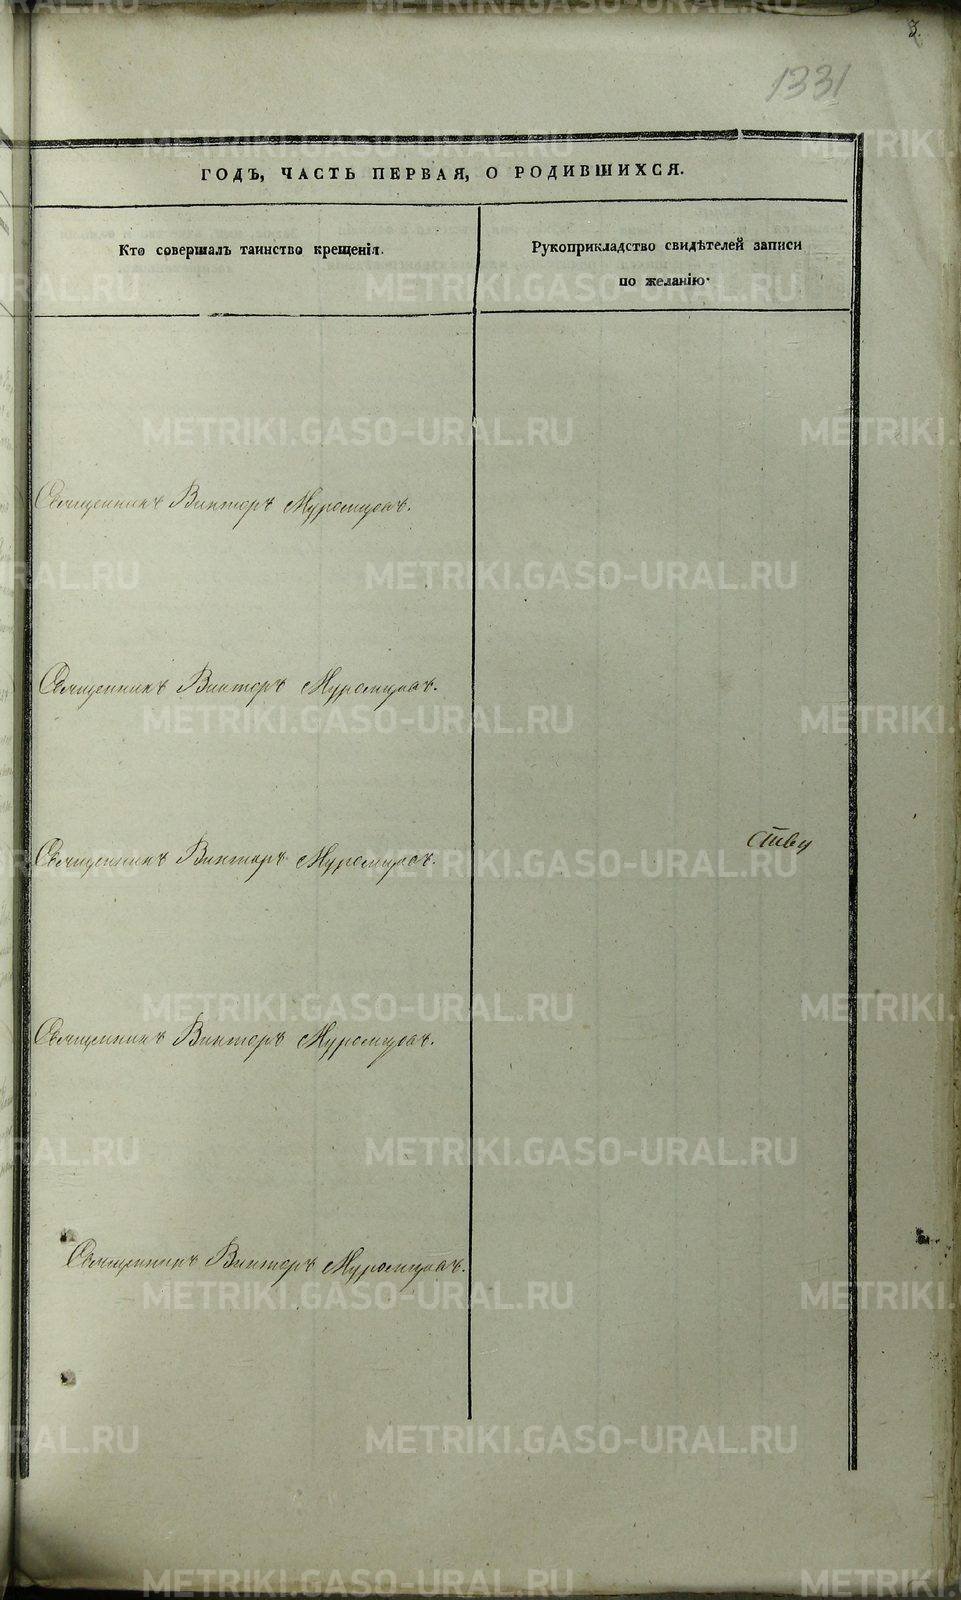 3.
1331
ГОДЪ, ЧАСТЬ ПЕРВАЯ, О РОДИВШИХСЯ.
Кто совершалъ таинство крещенія.
Рукоприкладство свидѣтелей записи
по желанію.
Священникъ Викторъ Муромцовъ.
Священникъ Викторъ Муромцовъ.
Священникъ Викторъ Муромцовъ.
ству
Священникъ Викторъ Муромцовъ.
Священникъ Викторъ Муромцовъ.
METRIKI.GASO-URAL.RU